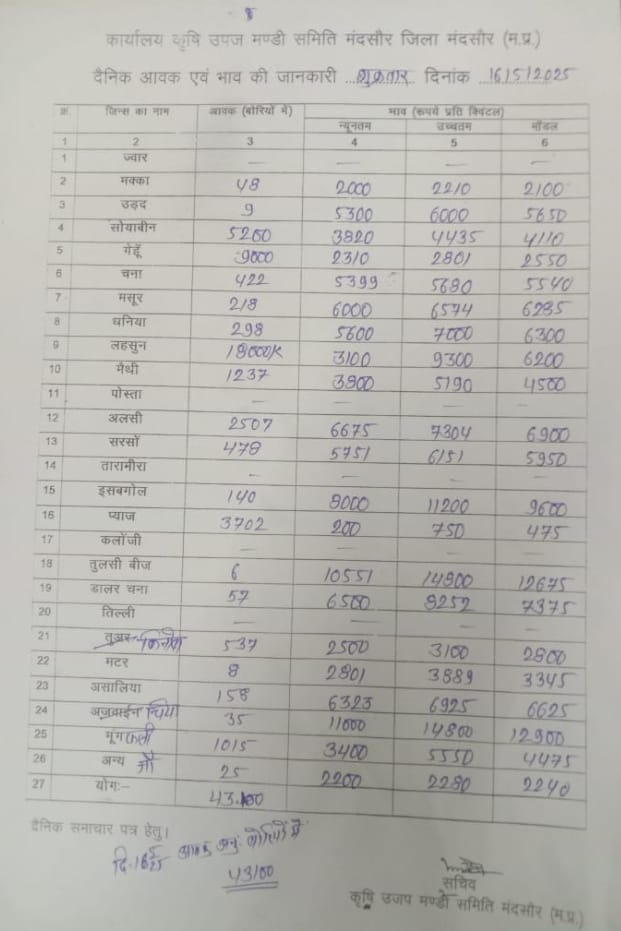 कार्यालय कृषि उपज मण्डी समिति मंदसौर जिला मंदसौर (म.प्र.)
दैनिक आवक एवं भाव की जानकारी ...शुक्रवार... दिनांक ..16/5/2025
क्र. जिन्स का नाम आवक (बोरियों में) भाव (रूपये प्रति क्विंटल)
न्यूनतम उच्चतम मॉडल
1 2 3 4 5 6
1 ज्वार — — — —
2 मक्का 48 2000 2210 2100
3 उड़द 9 5300 6000 5650
4 सोयाबीन 5260 3820 4435 4110
5 गेहूँ 9000 2310 2801 2550
6 चना 422 5399 5680 5540
7 मसूर 218 6000 6574 6285
8 धनिया 298 5600 7000 6300
9 लहसुन 18000/K 3100 9300 6200
10 मैथी 1237 3800 5190 4500
11 पोस्ता — — — —
12 अलसी 2507 6675 7304 6900
13 सरसों 478 5751 6151 5950
14 तारामीरा — — — —
15 इसबगोल 140 8000 11200 9600
16 प्याज 3702 200 750 475
17 कलोंजी — — — —
18 तुलसी बीज 6 10551 14800 12675
19 डालर चना 57 6500 8252 7375
20 तिल्ली — — — —
21 तुअर 537 2500 3100 2800
22 मटर 8 2801 3889 3345
23 असालिया 158 6323 6925 6625
24 अजवाईन चिया 35 11000 14800 12900
25 मूंगफली 1015 3400 5550 4475
26 अन्य जौ 25 2200 2280 2240
27 योगः- 43.100
दैनिक समाचार पत्र हेतु।
आवक अनु. बोरियों में
43100
सचिव
कृषि उजप मण्डी समिति मंदसौर (म.प्र.)